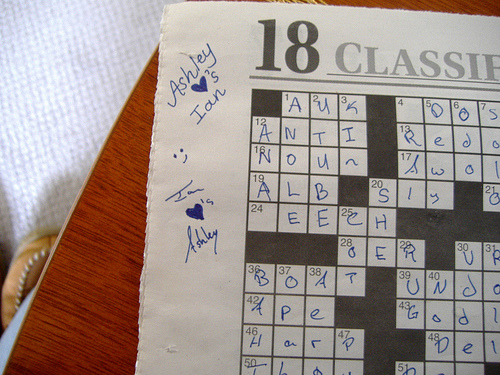 Ashley
♥'s
Ian
:;
Ian
♥'s
Ashley
18 CLASSIF
1 A 2 U 3 K 4 5 D 6 o 7 s
12 A N T I 13 R e d o
16 N o u n 17 A w o l
19 A L B 20 S l y 21
24 E E 25 C H
28 O E 29 R 30 U 31 R
36 B 37 O 38 A T 39 U 40 N d o
42 A p e 43 G o d l
46 H a r 47 P 48 D e l
50